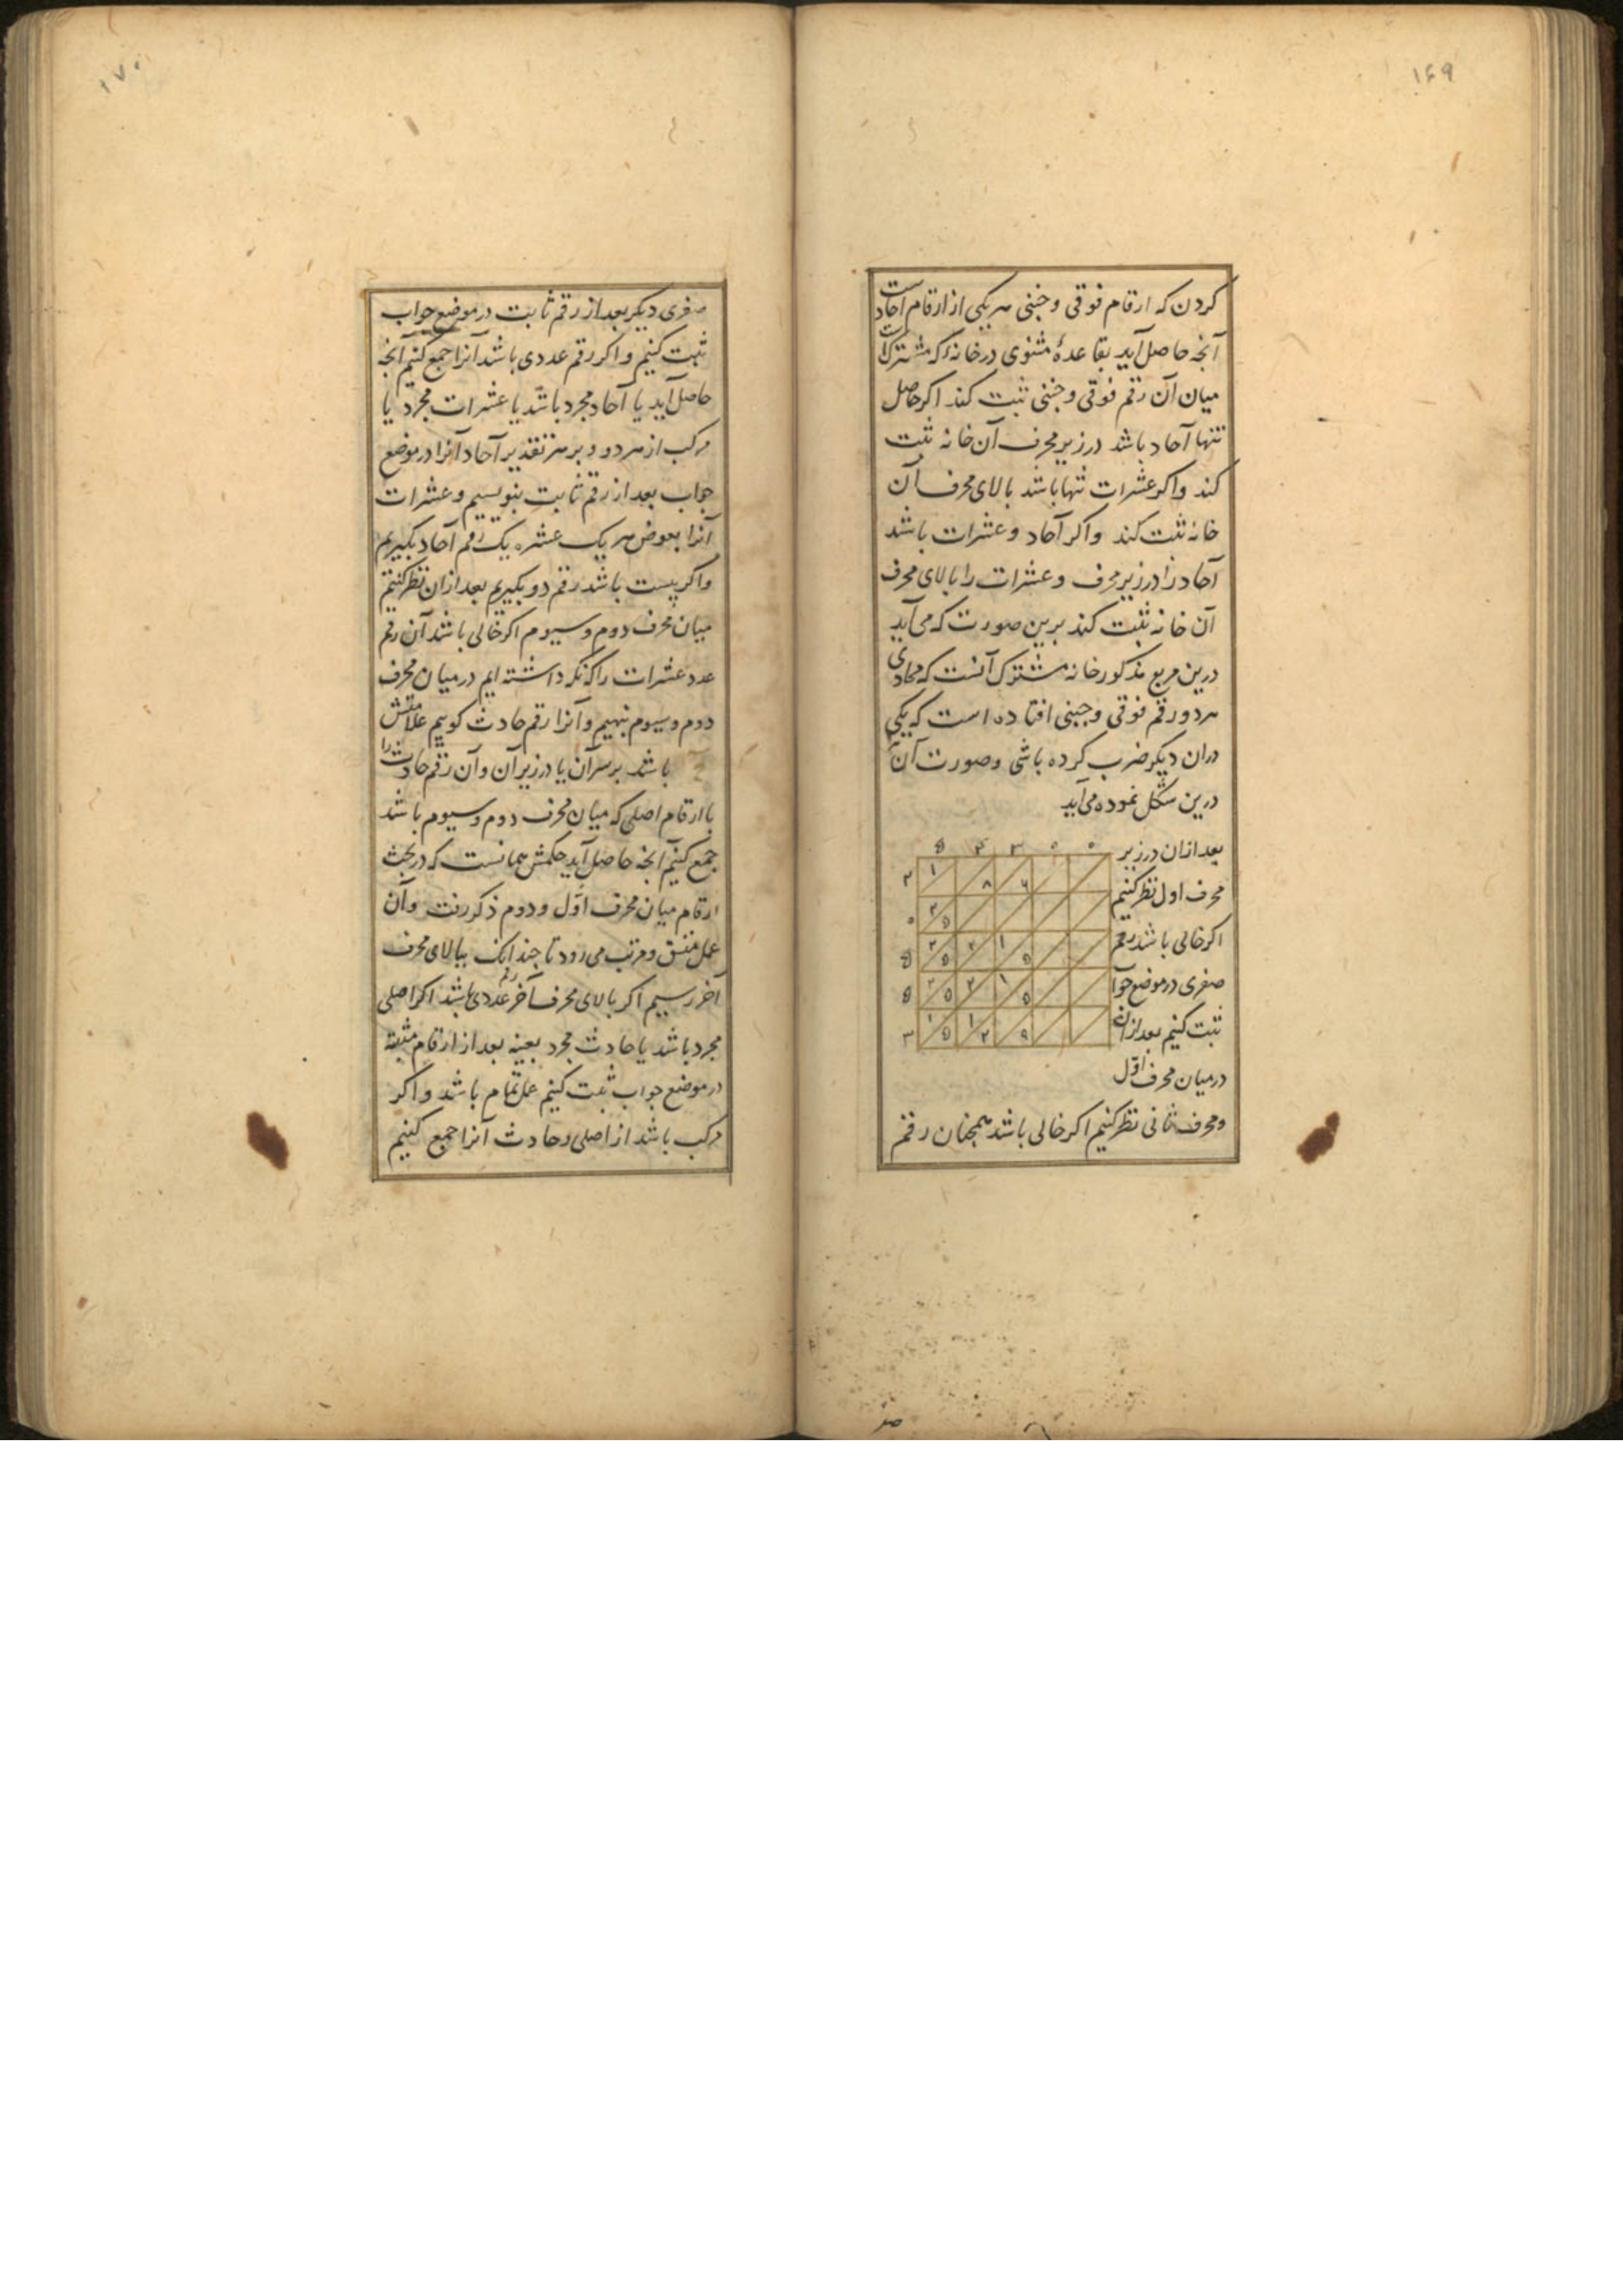 ۱۶۹
کردن که ارقام فوقی و جنبی هر یکی از ارقام احاد است
آنجه حاصل آید بقاعدهٔ مثنوی در خانهٔ که مشترک است
میان آن رقم فوقی و جنبی ثبت کند اکر حاصل
تنها آحاد باشد در زیر محرف آن خانه ثبت
کند و اکر عشرات تنها باشد بالای محرف آن
خانه ثبت کند و اکر آحاد و عشرات باشد
آحاد را در زیر محرف و عشرات را بالای محرف
آن خانه ثبت کند برین صورت که می آید
درین مربع مذکور خانه مشترک آنست که محاذی
هر دو رقم فوقی و جنبی افتاده است که یکی
در ان دیکر ضرب کرده باشی و صورت آن
درین شکل نموده می آید
۵ ۴ ۳ ۰ ۰
بعد از ان در زیر
۲ ۱ ۸ ۶
محرف اول نظر کنیم
۰ ۲ ۵
اکر خالی باشد رقم
۵ ۲ ۵ ۲ ۱ ۵
صفری در موضع جواب
۵ ۲ ۵ ۲ ۱ ۵
ثبت کنیم بعد از ان
۳ ۱ ۵ ۱ ۲ ۹
در میان محرف اول
و محرف ثانی نظر کنیم اکر خالی باشد همجنان رقم
صفر
۱۷۰
صفری دیکر بعد از رقم ثابت در موضع جواب
ثبت کنیم و اکر رقم عددی باشد آنرا جمع کنیم آنجه
حاصل آید یا آحاد مجرد باشد یا عشرات مجرد یا
مرکب از هر دو و بر هر تقدیر آحاد آنرا در موضع
جواب بعد از رقم ثابت بنویسیم و عشرات
آنرا بعوض هر یک عشره یک رقم آحاد بکیریم
و اکر بیست باشد رقم دو بکیریم بعد از ان نظر کنیم
میان محرف دوم و سیوم اکر خالی باشد آن رقم
عدد عشرات را که نکه داشته ایم در میان محرف
دوم و سیوم بنهیم و آنرا رقم حادث کوییم علامتش
باشد بر سر آن یا در زیر آن و آن رقم حادث را
با ارقام اصلی که میان محرف دوم و سیوم باشد
جمع کنیم آنجه حاصل آید حکمش همانست که در بحث
ارقام میان محرف اول و دوم ذکر رفت و آن
عمل متسق و مرتب می رود تا جندانک ببالای محرف
آخر رسیم اکر بالای محرف آخر رقم عددی باشد اکر اصلی
مجرد باشد یا حادث مجرد بعینه بعد از ارقام مثبته
در موضع جواب ثبت کنیم عمل تمام باشد و اکر
مرکب باشد از اصلی و حادث آنرا جمع کنیم